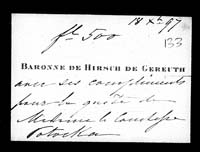 18 Xbre 97
fr 500
133
BARONNE DE HIRSCH DE GEREUTH
avec ses compliments
pour la quête de
Madame la Comtesse
Potocka